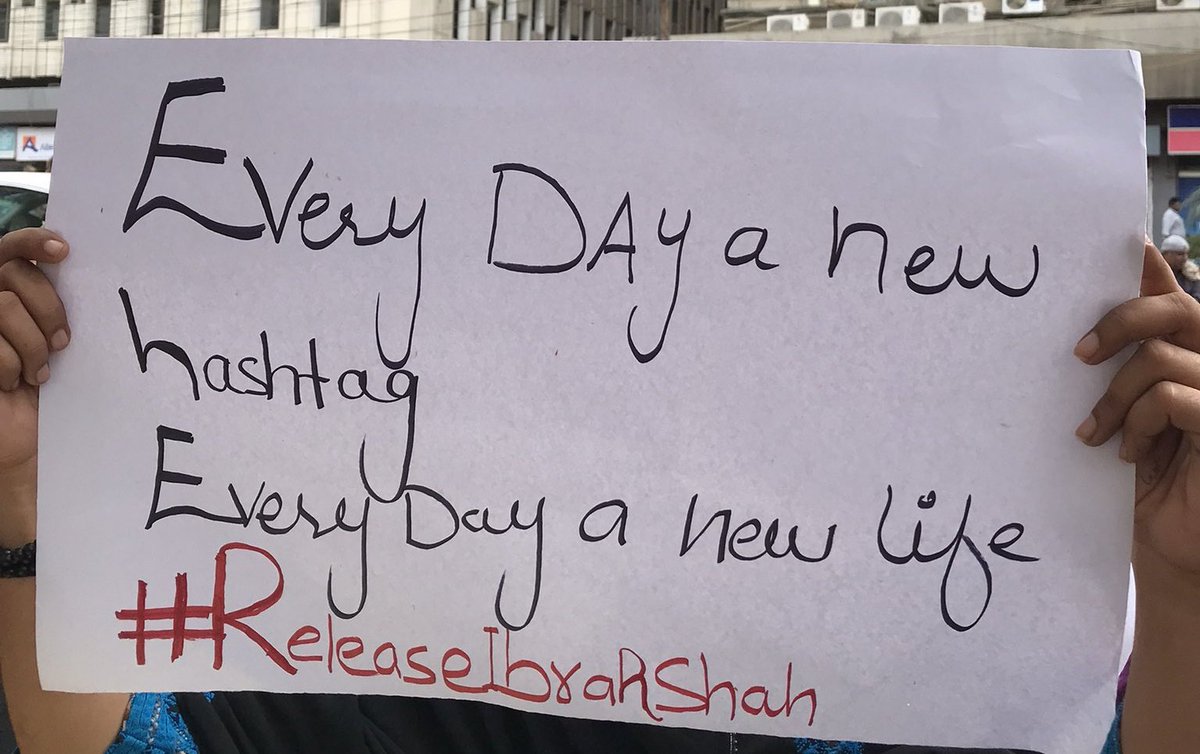 Every DAy a new
hashtag
Every Day a new life
#ReleaseIbrahShah